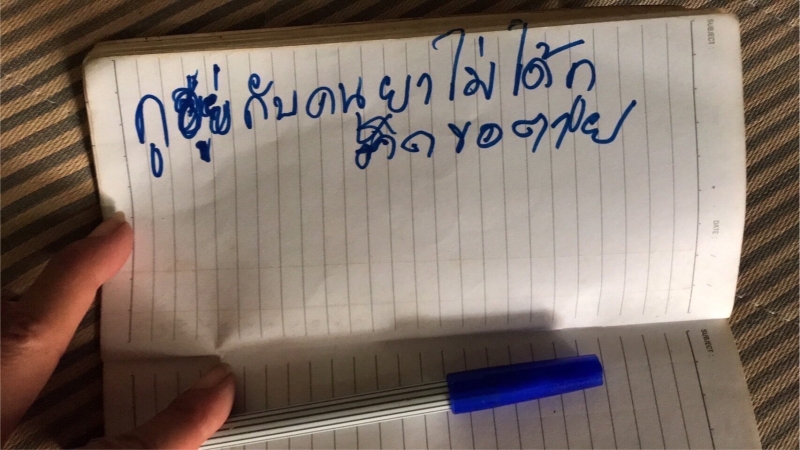 กู อยู่ กับคนยาไม่ได้ก
คิดขอตาย
SUBJECT
DATE / /
SUBJECT